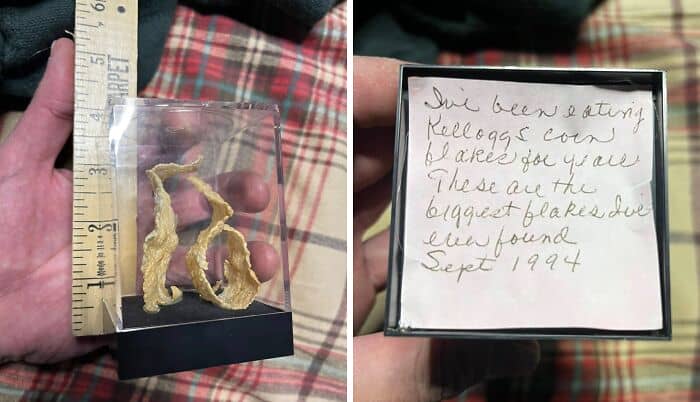 6
5
CARPET
4
3
2
1
I've been eating
Kelloggs corn
flakes for years
These are the
biggest flakes I've
ever found
Sept 1994